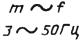 m ~ f
3 ~ 50Гц